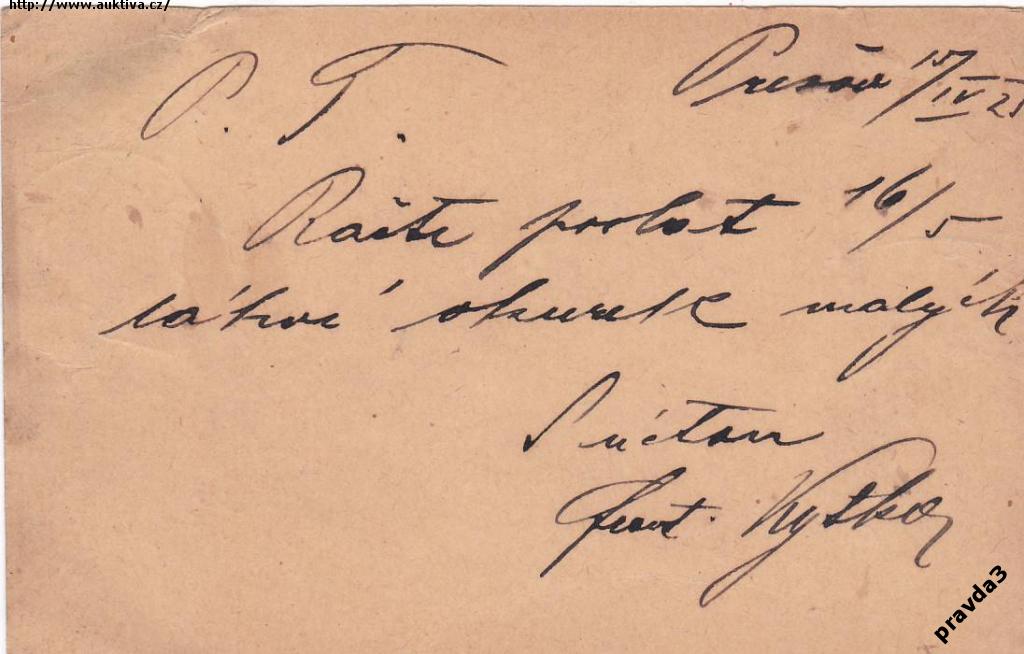 http://www.auktiva.cz/
P. T. Prešov 15/IV 2
Račte poslat 16/5
láhví okurek malých
S úctou
Frant.
pravda3